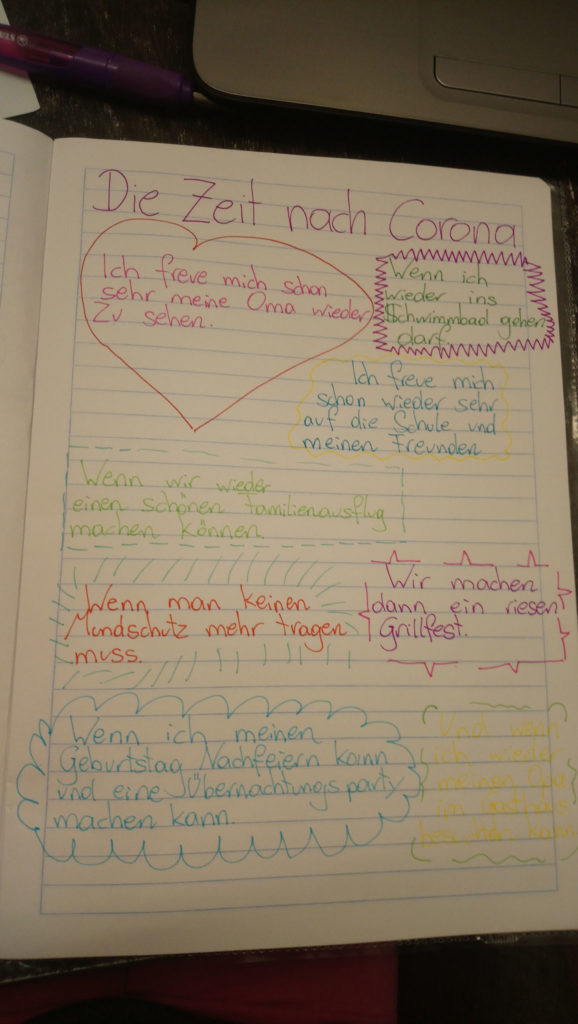 Die Zeit nach Corona
Ich freue mich schon
sehr meine Oma wieder
Zu sehen.
Wenn ich
wieder ins
Schwimmbad gehen
darf.
Ich freue mich
schon wieder sehr
auf die Schule und
meinen Freunden
Wenn wir wieder
einen schönen Familienausflug
machen können.
Wenn man keinen
Mundschutz mehr tragen
muss.
Wir machen
dann ein riesen
Grillfest.
Wenn ich meinen
Geburtstag Nachfeiern kann
und eine Übernachtungsparty
machen kann.
Und wenn
ich wieder
meinen Opa
im Gasthaus
besuchen kann